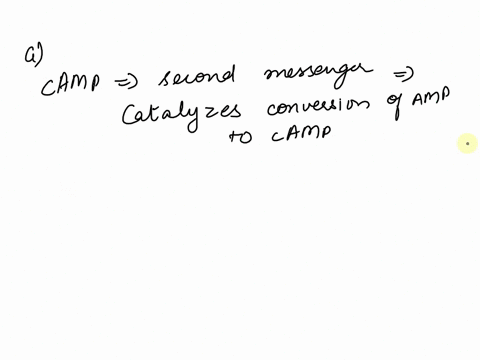 a)
cAMP => second messenger =>
Catalyzes conversion of AMP
to cAMP